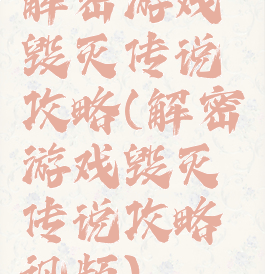 解密游戏
毁灭传说
攻略(解密
游戏毁灭
传说攻略
视频)